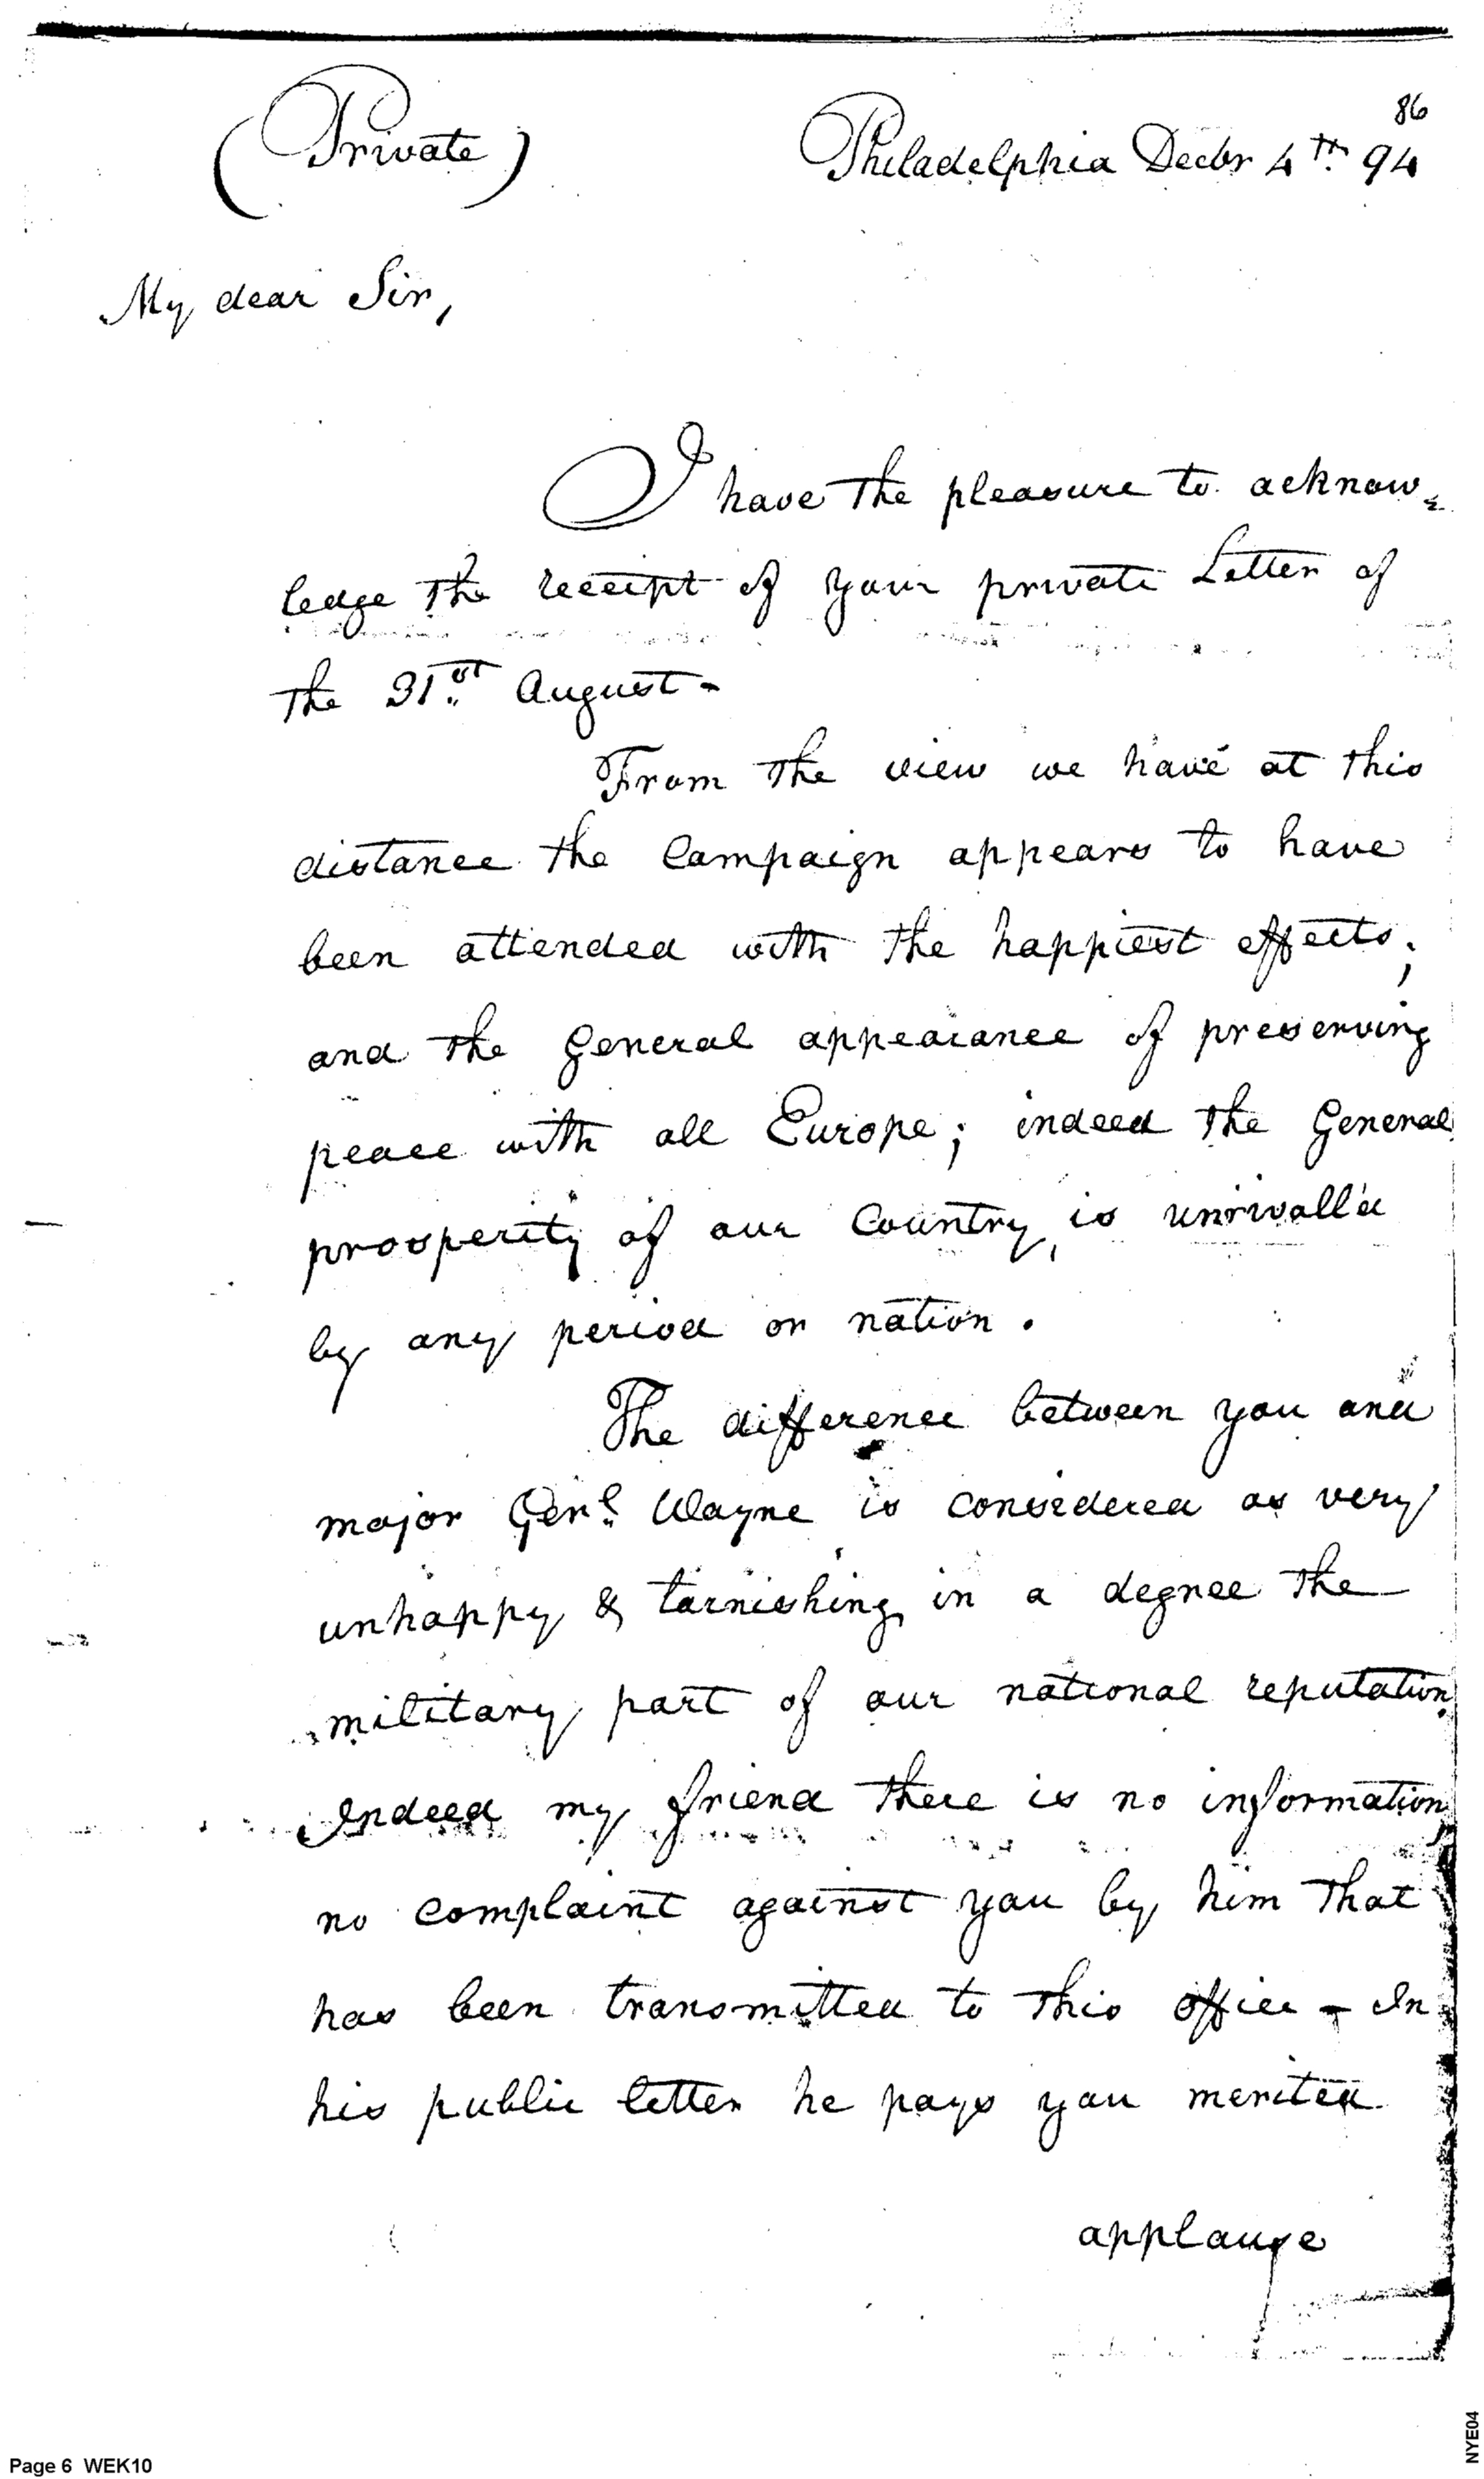 86
(Private) Philadelphia Decbr 4th. 94
My dear Sir,
I have the pleasure to acknow=
ledge the receipt of your private Letter of
the 31st. August -
From the view we have at this
distance the Campaign appears to have
been attended with the happiest effects;
and the General appearance of preserving
peace with all Europe; indeed the General
prosperity of our Country, is unrivall'd
by any period or nation.
The difference between you and
major Genl. Wayne is considered as very
unhappy & tarnishing in a degree the
military part of our national reputation.
Indeed my friend there is no information,
no complaint against you by him that
has been transmitted to this office - In
his public letter he pays you merited
applause
Page 6 WEK10
NYE04